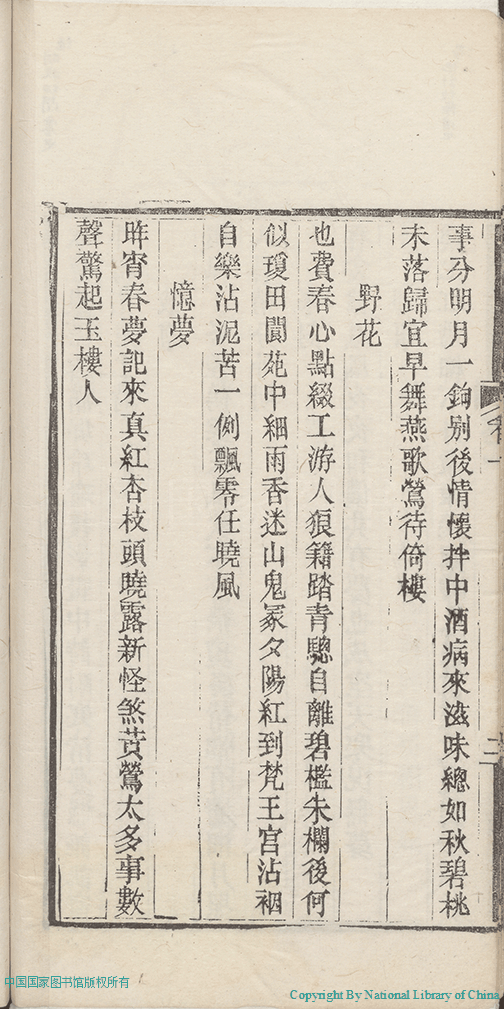 事分明月一鉤別後情懷拌中酒病來滋味總如秋碧桃
未落歸宜早舞燕歌鶯待倚樓
野花
也費春心點綴工游人狼籍踏青驄自離碧檻朱欄後何
似瓊田閬苑中細雨香迷山鬼冢夕陽紅到梵王宮沾裀
自樂沾泥苦一例飄零任曉風
憶夢
昨宵春夢記來真紅杏枝頭曉露新怪煞黃鶯太多事數
聲驚起玉樓人
中国国家图书馆版权所有
Copyright By National Library of China